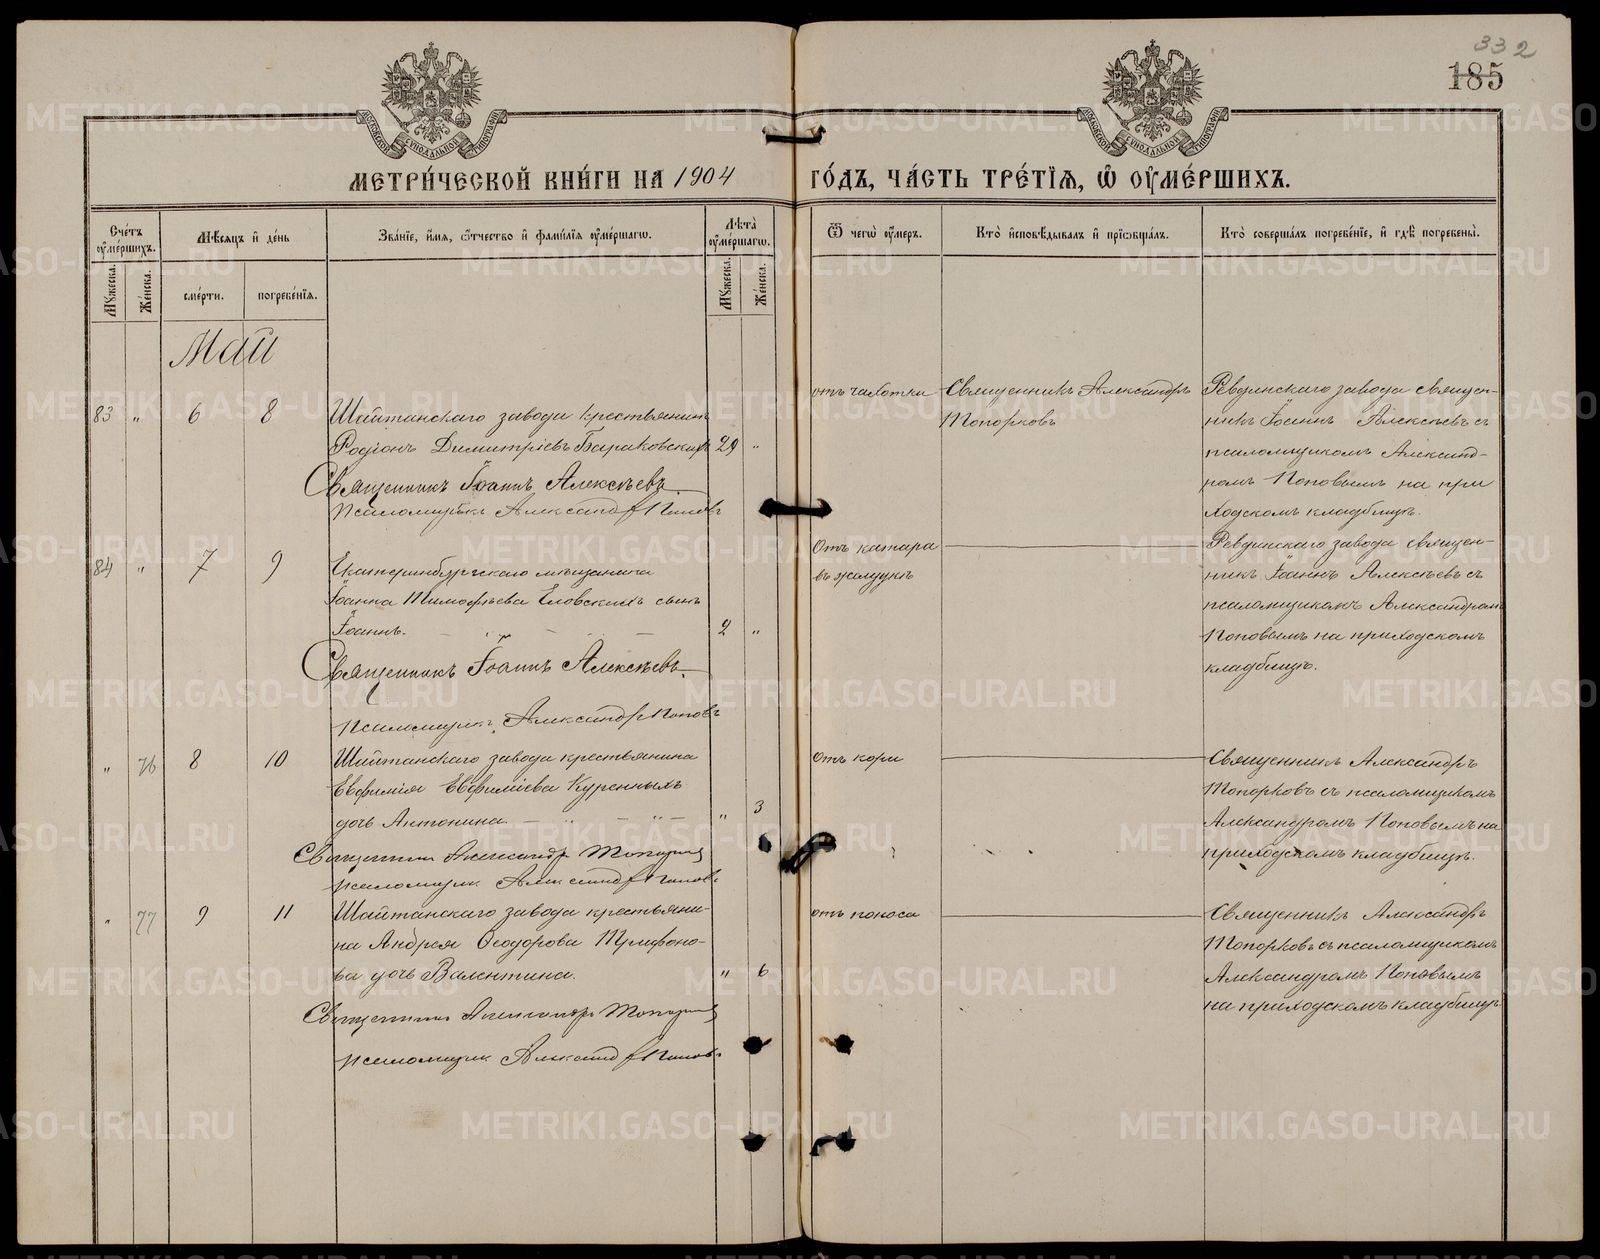 332
185
МОСКОВСКОЙ СѴНОДАЛЬНОЙ ТИПОГРАФІИ
МОСКОВСКОЙ СѴНОДАЛЬНОЙ ТИПОГРАФІИ
МЕТРИ́ЧЕСКОЙ КНИ́ГИ НА 1904 ГО́ДЪ, ЧА́СТЬ ТРЕ́ТІѦ, Ѽ ОУ҆МЕ́РШИХЪ.
Сче́тъ оу҆ме́ршихъ.
Мꙋ́жеска.
Же́нска.
Мѣ́сяцъ и҆ де́нь
сме́рти.
погребе́нїѧ.
Зва́нїе, и҆́мѧ, ѻ҆́тчество и҆ фами́лїѧ оу҆ме́ршагѡ.
Лѣ́та оу҆ме́ршагѡ.
Мꙋ́жеска.
Же́нска.
Ѿ чегѡ̀ оу҆́меръ.
Кто̀ и҆сповѣ́дывалъ и҆ прїѡбща́лъ.
Кто̀ соверша́лъ погребе́нїе, и҆ гдѣ̀ погребены̀.
Май
83 " 6 8 Шайтанскаго завода крестьянинъ
Родіонъ Димитріевъ Бараковскихъ 29 "
Священникъ Іоаннъ Алексѣевъ
Псаломщикъ Александръ Поповъ
отъ чахотки
Священникъ Александръ
Топорковъ
Ревдинскаго завода священ-
никъ Іоаннъ Алексѣевъ съ
псаломщикомъ Александ-
ромъ Поповымъ на при
ходскомъ кладбищѣ.
84 " 7 9 Екатеринбургскаго мѣщанина
Іоанна Тимофѣева Еловскихъ сынъ
Іоаннъ. 2 "
Священникъ Іоаннъ Алексѣевъ.
Псаломщикъ Александръ Поповъ
Отъ катара
въ желудкѣ
Ревдинскаго завода священ-
никъ Іоаннъ Алексѣевъ съ
псаломщикомъ Александромъ
Поповымъ на приходскомъ
кладбищѣ.
" 76 8 10 Шайтанскаго завода крестьянина
Евфимія Евфиміева Куренныхъ
дочь Антонина. " 3
Священникъ Александръ Топорковъ
Псаломщик Александръ Попов.
Отъ кори
Священникъ Александръ
Топорковъ съ псаломщикомъ
Александромъ Поповымъ на
приходскомъ кладбищѣ.
" 77 9 11 Шайтанскаго завода крестьяни-
на Андрея Ѳеодорова Трифоно-
ва дочь Валентина. " 6
Священникъ Александръ Топорковъ
Псаломщик Александръ Попов.
отъ поноса
Священникъ Александръ
Топорковъ съ псаломщикомъ
Александромъ Поповымъ
на приходскомъ кладбищѣ
METRIKI.GASO-URAL.RU